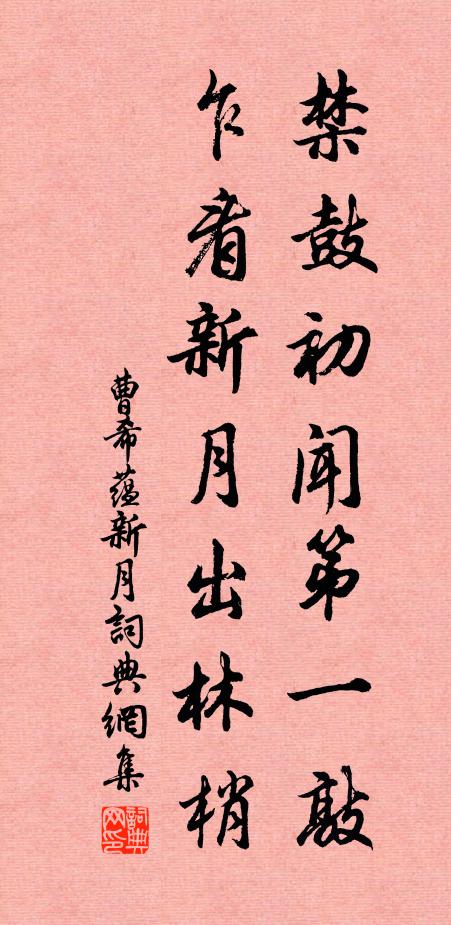 禁鼓初闻第一敲
乍看新月出林梢
曹希蕴新月詞典網集
詞典网印